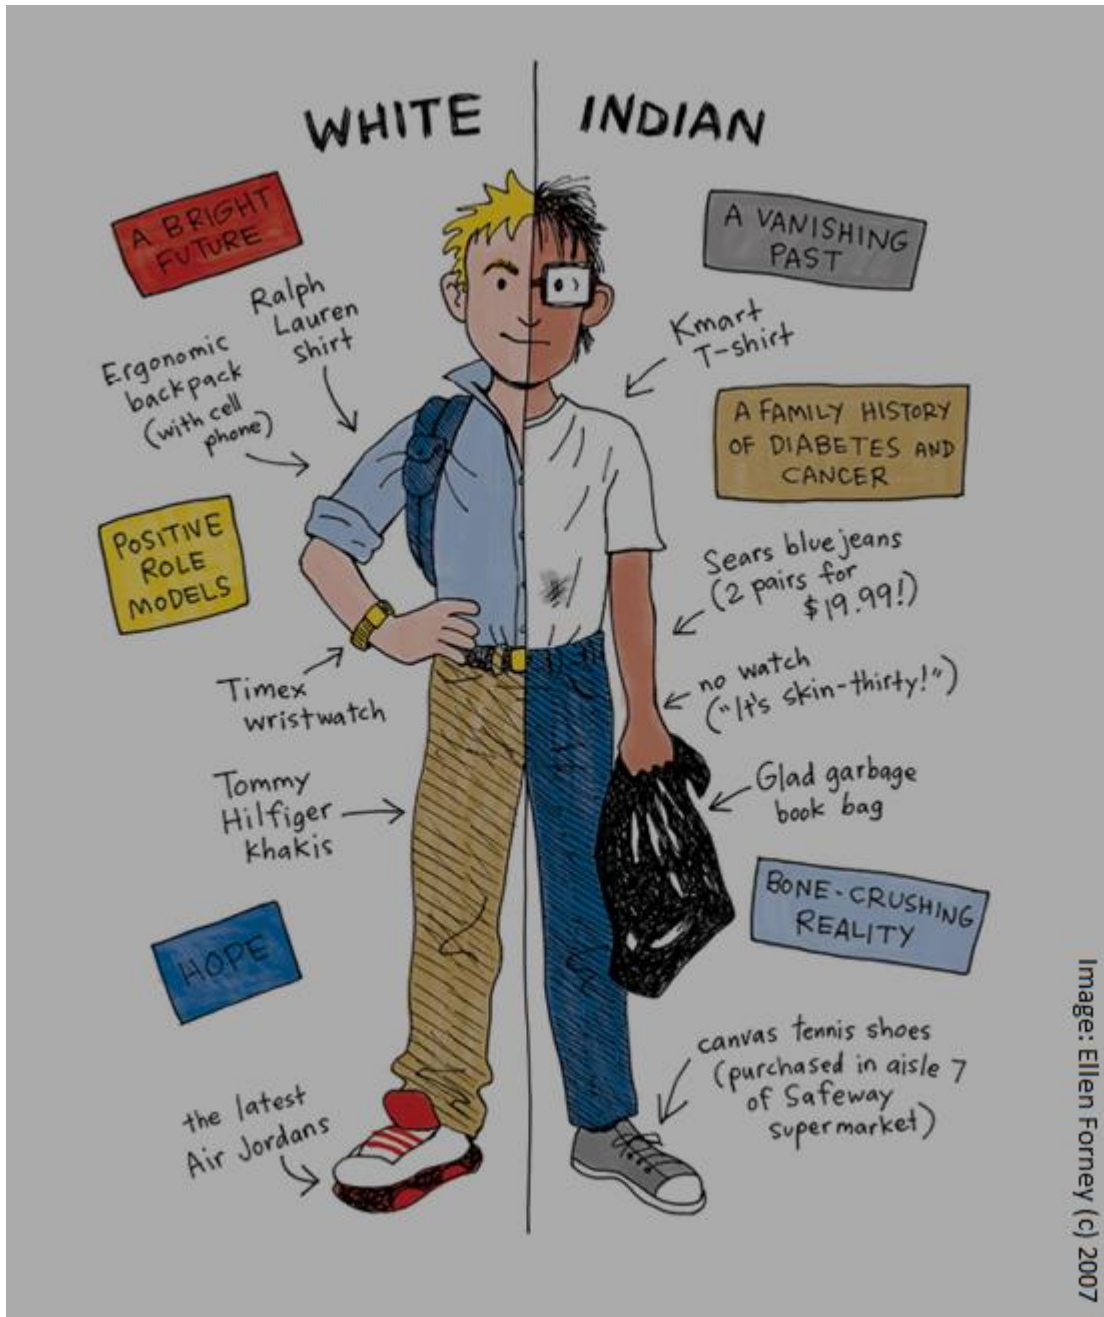 WHITE
INDIAN
A BRIGHT
FUTURE
Ralph
Lauren
shirt
Ergonomic
backpack
(with cell
phone)
POSITIVE
ROLE
MODELS
Timex
wristwatch
Tommy
Hilfiger
khakis
HOPE
the latest
Air Jordans
A VANISHING
PAST
Kmart
T-shirt
A FAMILY HISTORY
OF DIABETES AND
CANCER
Sears blue jeans
(2 pairs for
$19.99!)
no watch
("It's skin-thirty!")
Glad garbage
book bag
BONE-CRUSHING
REALITY
canvas tennis shoes
(purchased in aisle 7
of Safeway
supermarket)
Image: Ellen Forney (c) 2007